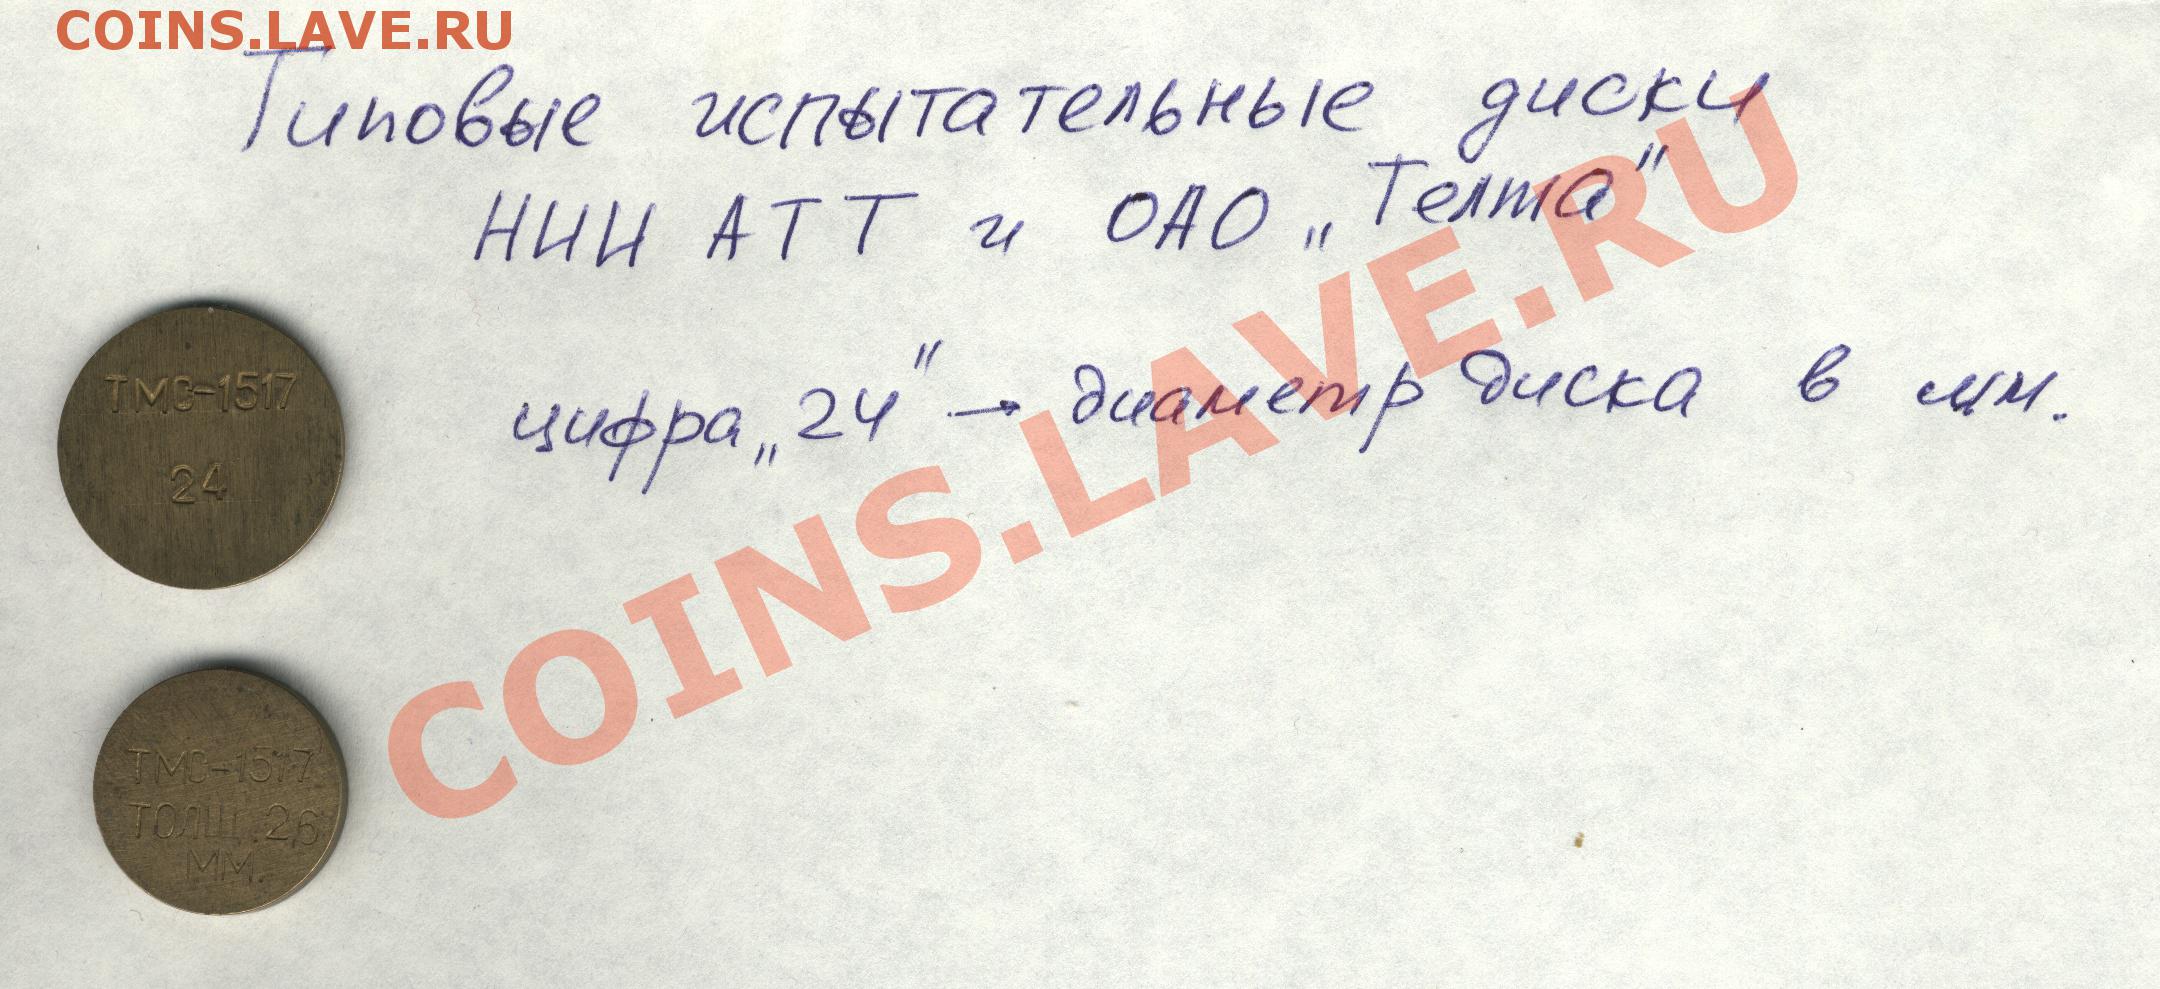 COINS.LAVE.RU
Типовые испытательные диски
НИИ АТТ и ОАО „Телта"
цифра „24" → диаметр диска в мм.
ТМС-1517
24
ТМС-1517
ТОЛЩ. 2,6
ММ.
COINS.LAVE.RU